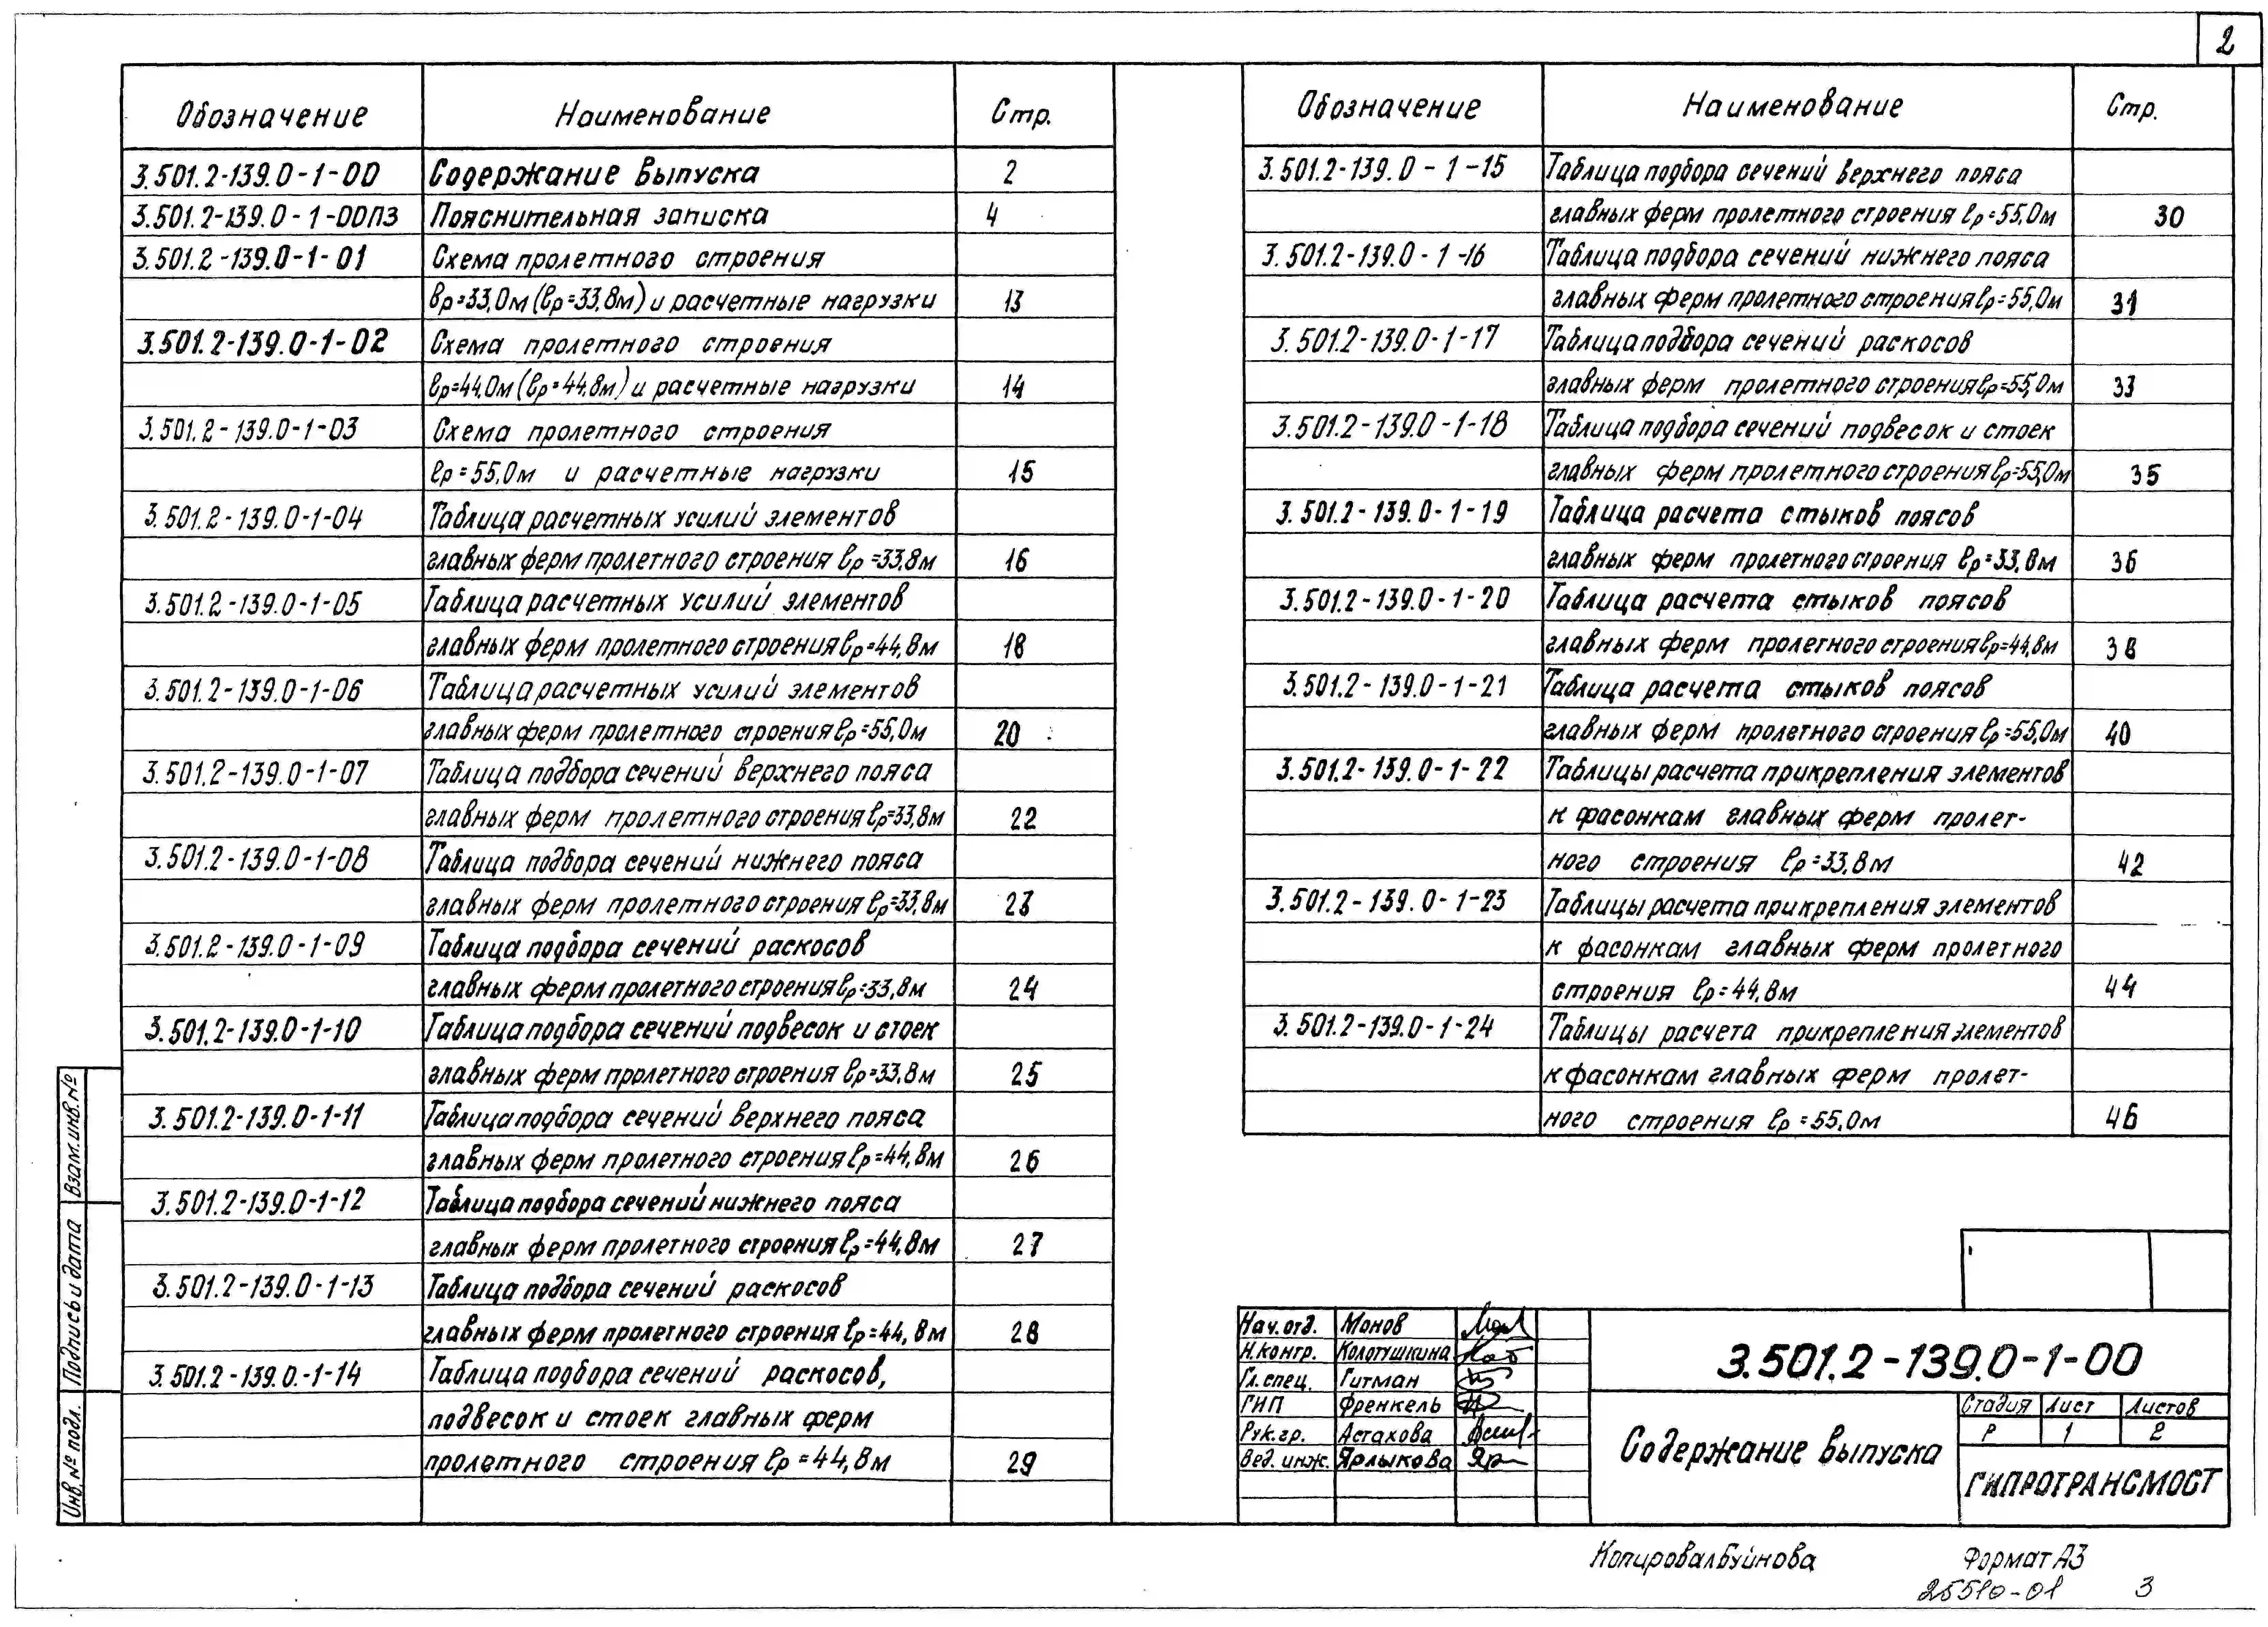 2
Обозначение Наименование Стр.
3.501.2-139.0-1-00 Содержание выпуска 2
3.501.2-139.0-1-00ПЗ Пояснительная записка 4
3.501.2-139.0-1-01 Схема пролетного строения
ℓр=33,0м (ℓр=33,8м) и расчетные нагрузки 13
3.501.2-139.0-1-02 Схема пролетного строения
ℓр=44,0м (ℓр=44,8м) и расчетные нагрузки 14
3.501.2-139.0-1-03 Схема пролетного строения
ℓр=55,0м и расчетные нагрузки 15
3.501.2-139.0-1-04 Таблица расчетных усилий элементов
главных ферм пролетного строения ℓр=33,8м 16
3.501.2-139.0-1-05 Таблица расчетных усилий элементов
главных ферм пролетного строения ℓр=44,8м 18
3.501.2-139.0-1-06 Таблица расчетных усилий элементов
главных ферм пролетного строения ℓр=55,0м 20
3.501.2-139.0-1-07 Таблица подбора сечений верхнего пояса
главных ферм пролетного строения ℓр=33,8м 22
3.501.2-139.0-1-08 Таблица подбора сечений нижнего пояса
главных ферм пролетного строения ℓр=33,8м 23
3.501.2-139.0-1-09 Таблица подбора сечений раскосов
главных ферм пролетного строения ℓр=33,8м 24
3.501.2-139.0-1-10 Таблица подбора сечений подвесок и стоек
главных ферм пролетного строения ℓр=33,8м 25
3.501.2-139.0-1-11 Таблица подбора сечений верхнего пояса
главных ферм пролетного строения ℓр=44,8м 26
3.501.2-139.0-1-12 Таблица подбора сечений нижнего пояса
главных ферм пролетного строения ℓр=44,8м 27
3.501.2-139.0-1-13 Таблица подбора сечений раскосов
главных ферм пролетного строения ℓр=44,8м 28
3.501.2-139.0.-1-14 Таблица подбора сечений раскосов,
подвесок и стоек главных ферм
пролетного строения ℓр=44,8м 29
Обозначение Наименование Стр.
3.501.2-139.0-1-15 Таблица подбора сечений верхнего пояса
главных ферм пролетного строения ℓр=55,0м 30
3.501.2-139.0-1-16 Таблица подбора сечений нижнего пояса
главных ферм пролетного строения ℓр=55,0м 31
3.501.2-139.0-1-17 Таблица подбора сечений раскосов
главных ферм пролетного строения ℓр=55,0м 33
3.501.2-139.0-1-18 Таблица подбора сечений подвесок и стоек
главных ферм пролетного строения ℓр=55,0м 35
3.501.2-139.0-1-19 Таблица расчета стыков поясов
главных ферм пролетного строения ℓр=33,8м 36
3.501.2-139.0-1-20 Таблица расчета стыков поясов
главных ферм пролетного строения ℓр=44,8м 38
3.501.2-139.0-1-21 Таблица расчета стыков поясов
главных ферм пролетного строения ℓр=55,0м 40
3.501.2-139.0-1-22 Таблицы расчета прикрепления элементов
к фасонкам главных ферм пролет-
ного строения ℓр=33,8м 42
3.501.2-139.0-1-23 Таблицы расчета прикрепления элементов
к фасонкам главных ферм пролетного
строения ℓр=44,8м 44
3.501.2-139.0-1-24 Таблицы расчета прикрепления элементов
к фасонкам главных ферм пролет-
ного строения ℓр=55,0м 46
Взам.инв.№
Подпись и дата
Инв.№ подл.
Нач.отд. Монов
Н.контр. Колотушкина
Гл.спец. Гитман
ГИП Френкель
Рук.гр. Астахова
Вед.инж. Ярлыкова
3.501.2-139.0-1-00
Содержание выпуска
Стадия Лист Листов
Р 1 2
ГИПРОТРАНСМОСТ
Копировал Буйнова Формат А3
25510-01 3